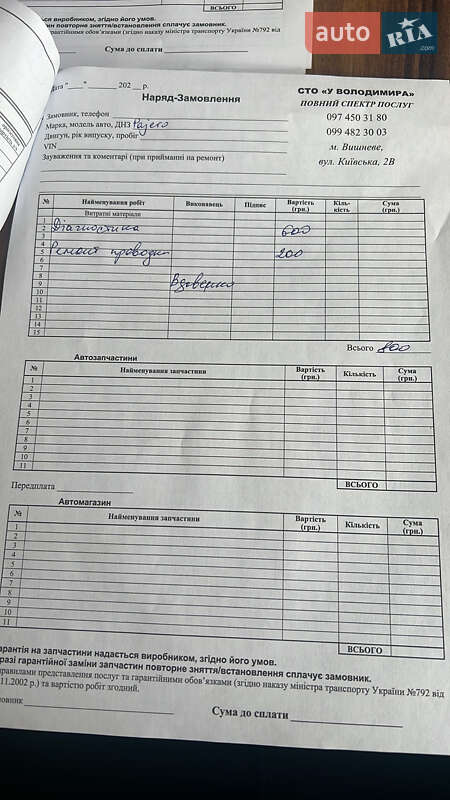 виробником, згідно його умов.
повторне зняття/встановлення сплачує замовник.
гарантійними обов'язками (згідно наказу міністра транспорту України №792 від
Сума до сплати
auto RIA .com
Дата "___" ________ 202 __ р.
Наряд-Замовлення
Замовник, телефон
Марка, модель авто, ДНЗ Pajero
Двигун, рік випуску, пробіг
VIN
Зауваження та коментарі (при прийманні на ремонт)
СТО "У ВОЛОДИМИРА"
ПОВНИЙ СПЕКТР ПОСЛУГ
097 450 31 80
099 482 30 03
м. Вишневе,
вул. Київська, 2В
№ Найменування робіт Виконавець Підпис Вартість (грн.) Кількість Сума (грн.)
Витратні матеріали
1
2 Діагностика 600
3
4
5 Ремонт проводки 200
6
7
8
9
10
11
12
13
14
15
Всього 800
Автозапчастини
№ Найменування запчастини Вартість (грн.) Кількість Сума (грн.)
1
2
3
4
5
6
7
8
9
10
11
ВСЬОГО
Передплата
Автомагазин
№ Найменування запчастини Вартість (грн.) Кількість Сума (грн.)
1
2
3
4
5
6
7
8
9
10
11
ВСЬОГО
арантія на запчастини надається виробником, згідно його умов.
разі гарантійної заміни запчастин повторне зняття/встановлення сплачує замовник.
равилами представлення послуг та гарантійними обов'язками (згідно наказу міністра транспорту України №792 від
.11.2002 р.) та вартістю робіт згодний.
мовник
Сума до сплати